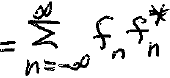 = \sum_{n=-\infty}^{\infty} f_n f_n^*